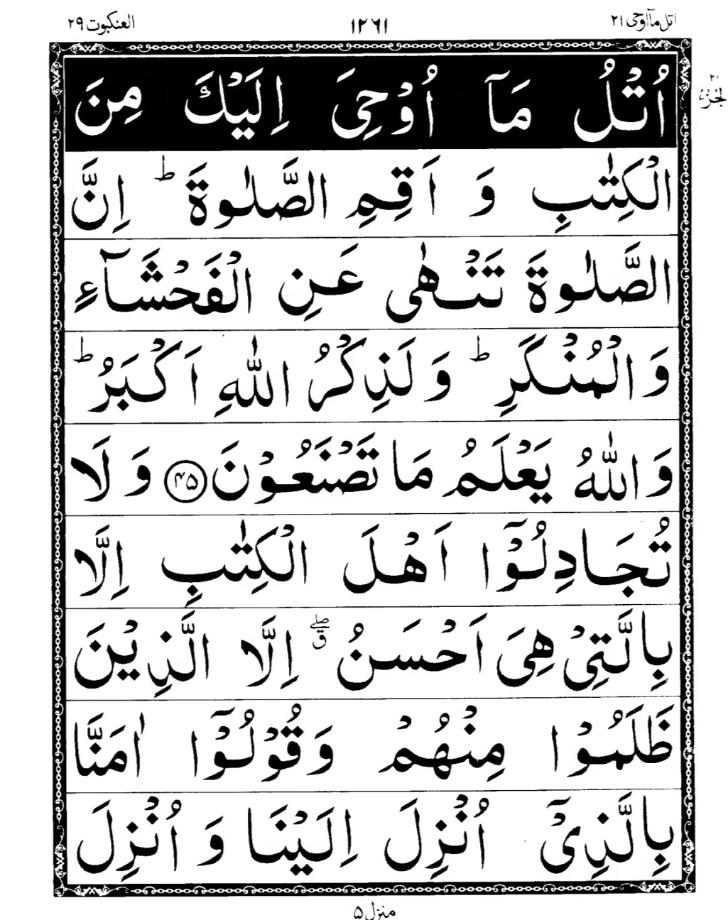 اتل مآ اوحی ۲۱ ۱۲۶۱ العنکبوت ۲۹
الجزء ۲۱
اُتْلُ مَاۤ اُوْحِیَ اِلَیْكَ مِنَ
الْكِتٰبِ وَ اَقِمِ الصَّلٰوةَ ؕ اِنَّ
الصَّلٰوةَ تَنْهٰی عَنِ الْفَحْشَآءِ
وَ الْمُنْكَرِ ؕ وَ لَذِكْرُ اللّٰهِ اَكْبَرُ ؕ
وَ اللّٰهُ یَعْلَمُ مَا تَصْنَعُوْنَ ۴۵ وَ لَا
تُجَادِلُوْۤا اَهْلَ الْكِتٰبِ اِلَّا
بِالَّتِیْ هِیَ اَحْسَنُ ۖۗ اِلَّا الَّذِیْنَ
ظَلَمُوْا مِنْهُمْ وَ قُوْلُوْۤا اٰمَنَّا
بِالَّذِیْۤ اُنْزِلَ اِلَیْنَا وَ اُنْزِلَ
منزل ۵